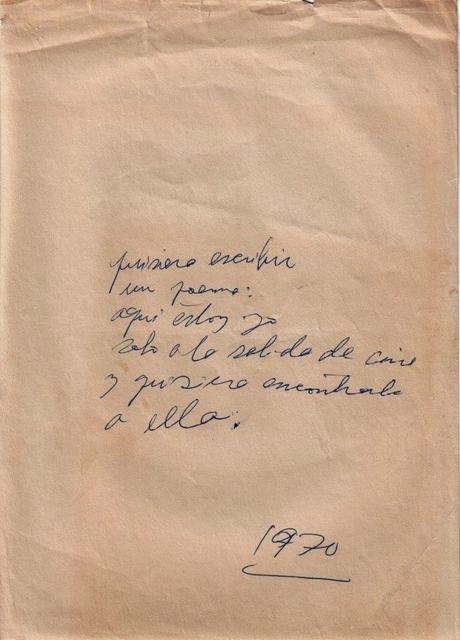 quisiera escribir
un poema:
aquí estoy yo
solo a la salida de cine
y quisiera encontrarla
a ella.
1970